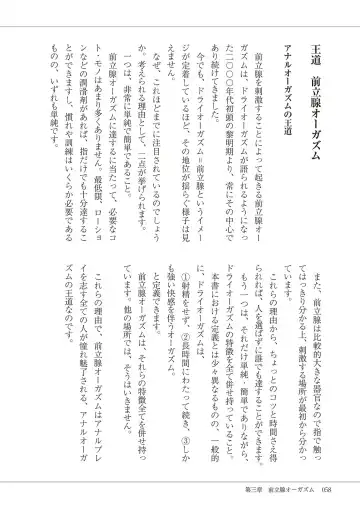 王道 前立腺オーガズム
アナルオーガズムの王道
前立腺を刺激することによって起きる前立腺オー
ガズムは、ドライオーガズムが語られるようになっ
た二〇〇〇年代初頭の黎明期より、常にその中心で
あり続けてきました。
今でも、ドライオーガズム=前立腺というイメー
ジが定着しているほど、その地位が揺らぐ様子は見
えません。
なぜ、これほどまでに注目されているのでしょう
か。考えられる理由として、二点が挙げられます。
一つは、非常に単純で簡単であること。
前立腺オーガズムに達するに当たって、必要なコ
ト・モノはあまり多くありません。最低限、ローショ
ンなどの潤滑剤があれば、指だけでも十分達するこ
とができますし、慣れや訓練はいくらか必要である
ものの、いずれも単純です。
また、前立腺は比較的大きな器官なので指で触っ
てはっきり分かる上、刺激する場所が最初から分かっ
ています。
これらの理由から、ちょっとのコツと時間さえ得
られれば、人を選ばずに誰でも達することができます。
もう一つは、それだけ単純・簡単でありながら、
ドライオーガズムの特徴を全て併せ持っていること。
本書における定義とは少々異なるものの、一般的
に、ドライオーガズムは、
①射精をせず、②長時間にわたって続き、③しか
も強い快感を伴うオーガズム。
と定義できます。
前立腺オーガズムは、それらの特徴全てを併せ持っ
ています。他の場所では、そうはいきません。
これらの理由で、前立腺オーガズムはアナルプレ
イを志す全ての人が憧れ魅了される、アナルオーガ
ズムの王道なのです。
第三章 前立腺オーガズム 058